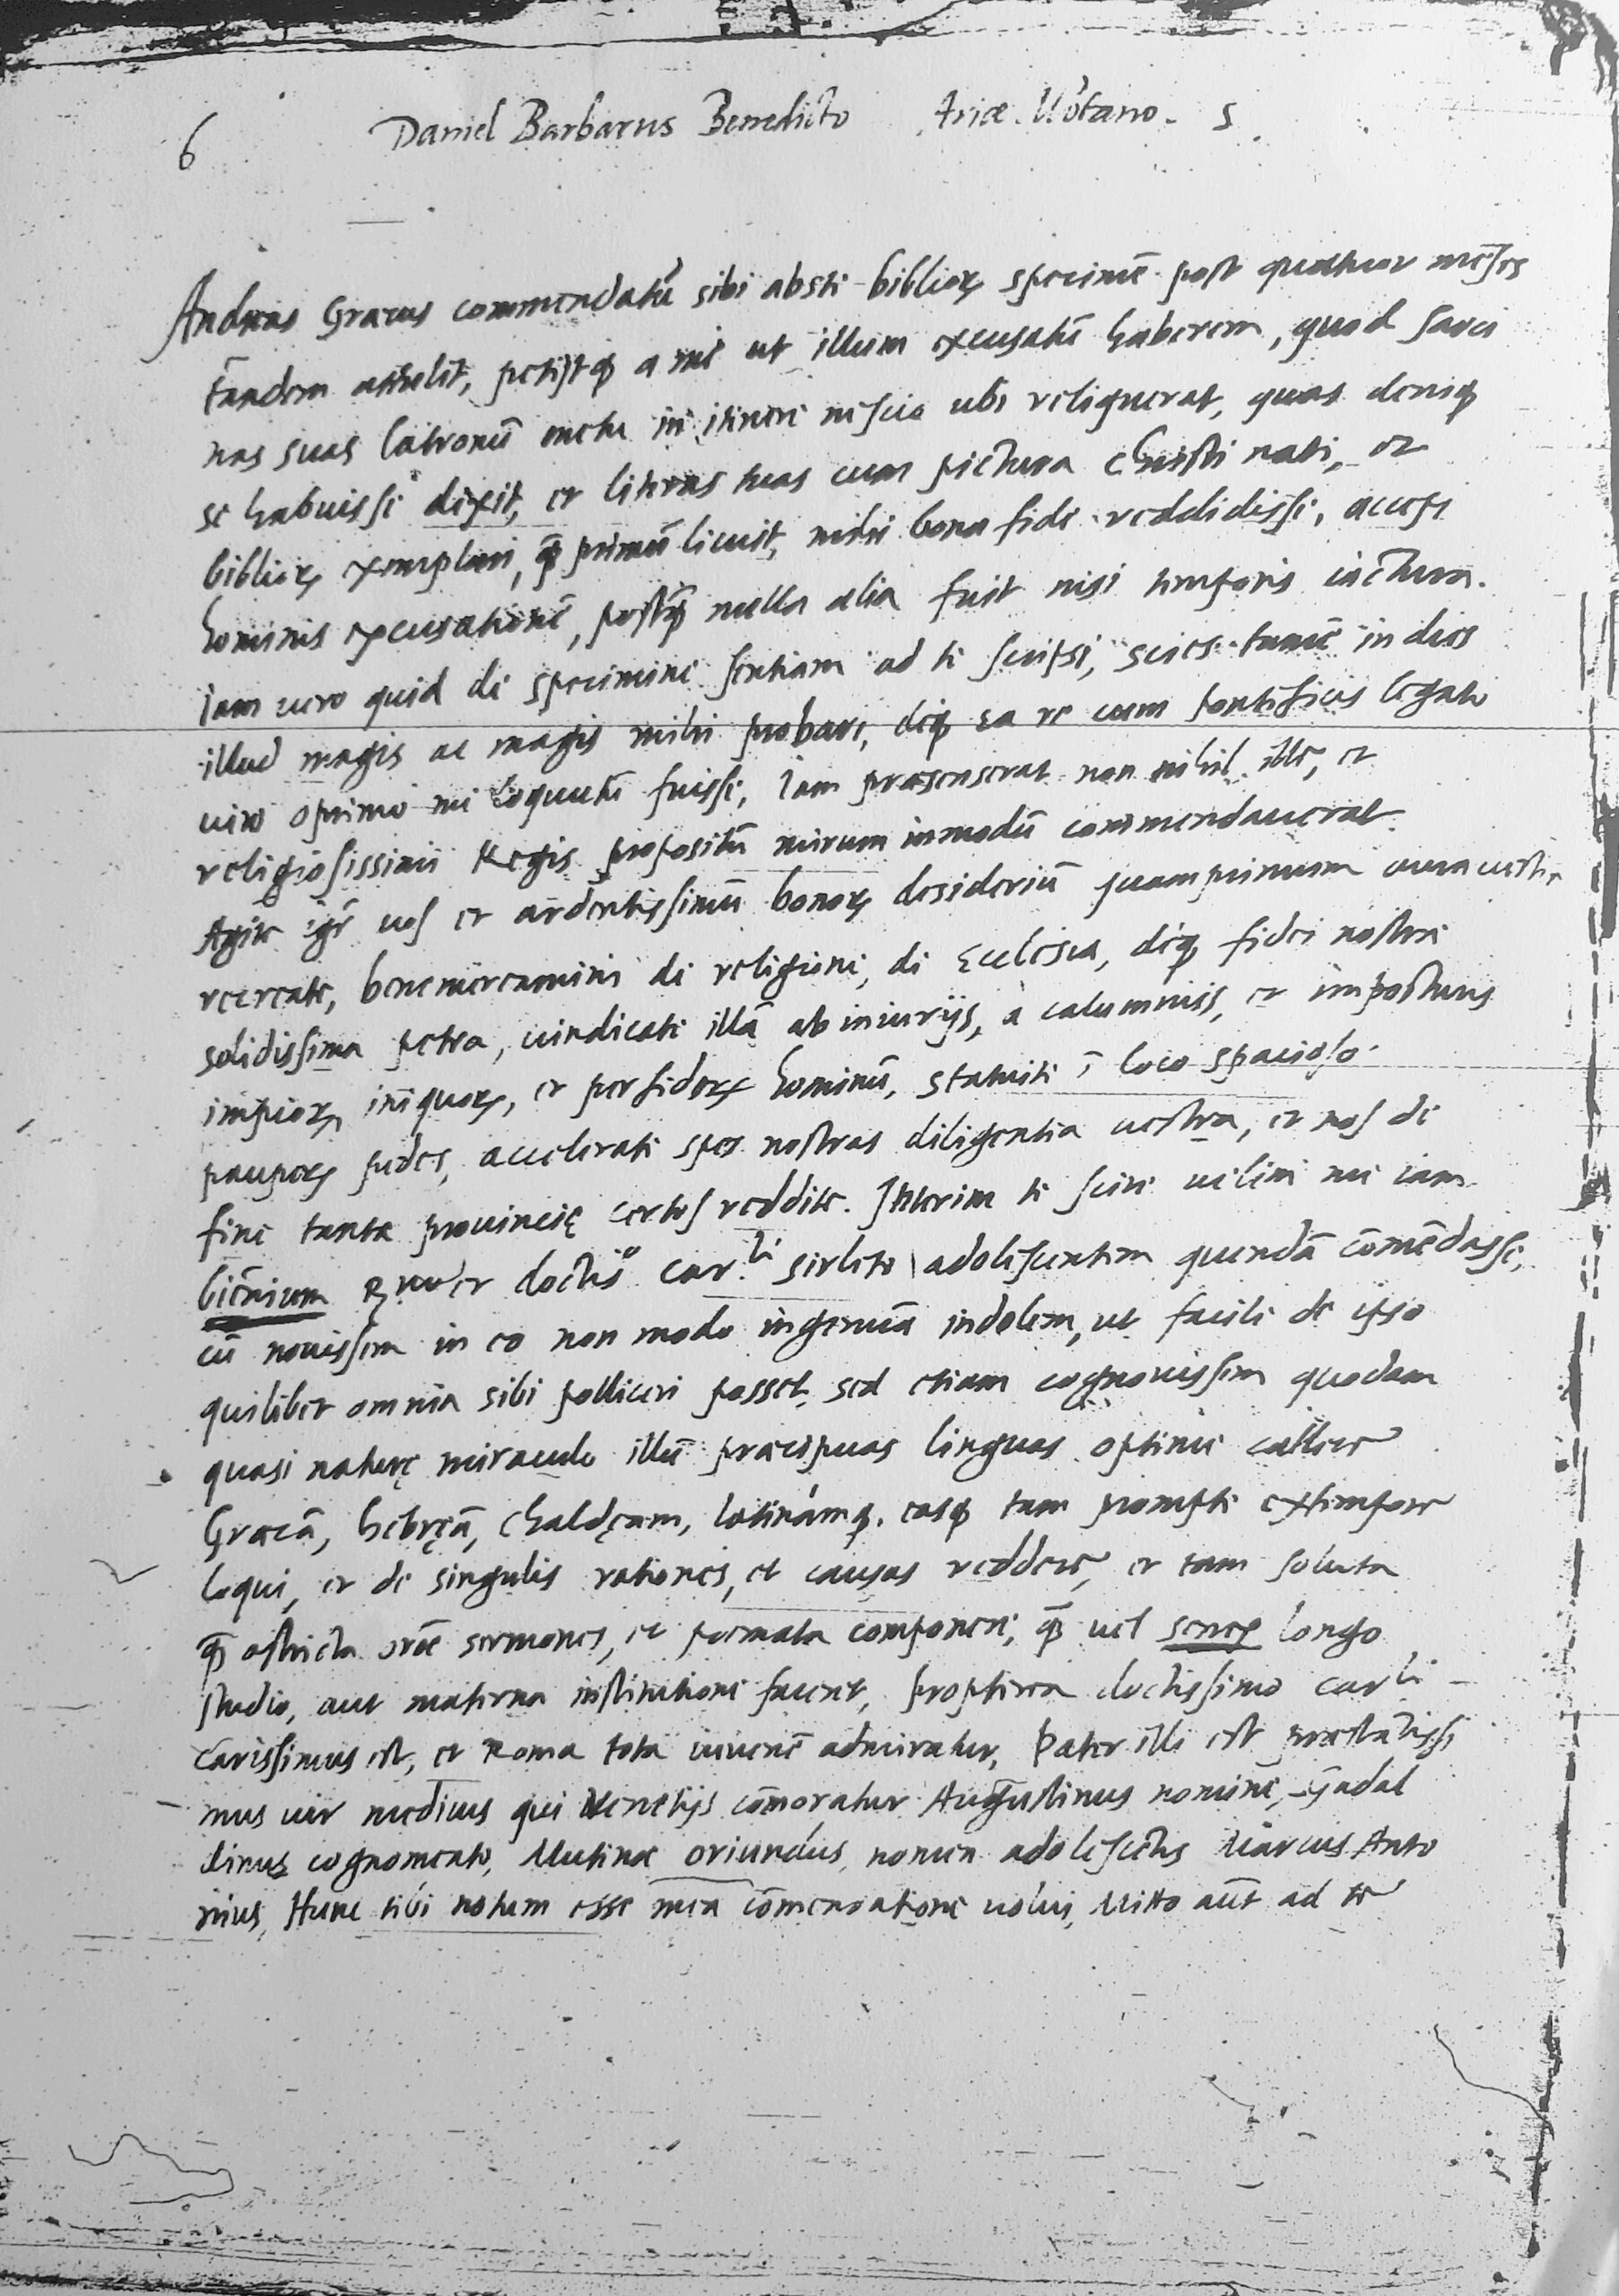 6 Daniel Barbarus Benedicto Ariæ. Mōtano. S.
Andreas Græcus commendatū sibi abs te bibliorꝝ specimē post quattuor mēses
tandem attulit, petijtqꝫ a me ut illum excusatū haberem, quod sarci
nas suas latronū metu in itinere nescio ubi reliquerat, quas deniqꝫ
se habuisse dixit, et literas tuas cum pictura Christi nati, et
bibliorꝝ exemplari, qꝫ̄ primū licuit, mihi bona fide reddidisse, accepi
hominis excusationē, postqꝫ̄ nulla alia fuit nisi temporis iactura.
Iam vero quid de specimine sentiam ad te scripsi, scies tamē in dies
illud magis ac magis mihi probari, deqꝫ ea re cum Pontificis legato
viro optimo me loquutū fuisse, Iam præsenserat non nihil ille, et
religiosissimi Regis propositū mirum inmodū commendauerat.
Agite igr̄ uos et ardentissimū bonorꝝ desideriū quamprimum cura vestra
recreate, benemereamini de religione, de Ecclesia, deqꝫ fidei nostræ
solidissima petra, vindicate illā ab iniurijs, a calumnijs, et imposturis
impiorꝝ, iniquorꝝ, et perfidorꝝ hominū, statuite ī loco spacioso
pauperꝝ pedes, accelerate spes nostras diligentia uestra, et nos de
fine tantæ prouincię certos reddite. Interim te scire uelim me iam
biēnium et doctisº Car.li Sirleto adolescentem quendā cōmēdasse,
cū nouissem in eo non modo ingenuā indolem, ut facile de ipso
quilibet omnia sibi polliceri posset, sed etiam cognouissem quodam
quasi naturę miraculo illū præcipuas linguas optime callere
Græcā, hebręā, chaldęam, latinámqꝫ. easqꝫ tam prompte extempore
loqui, et de singulis rationes, et causas reddere, et tam soluta
qꝫ̄ astricta orōe sermones, et poemata componere, qꝫ̄ uel senex longo
studio, aut materna institutione faceret, propterea doctissimo Carli
carissimus est, et Roma tota iuuenē admiratur, Pater illi est præstātissi
mus uir medicus qui Venetijs cōmoratur Augustinus nomine, Gadal
dinus cognomento, Mutinæ oriundus, nomen adolescētis Marcus Anto
nius, Hunc tibi notum esse mea cōmendatione uolui, Mitto aūt ad te